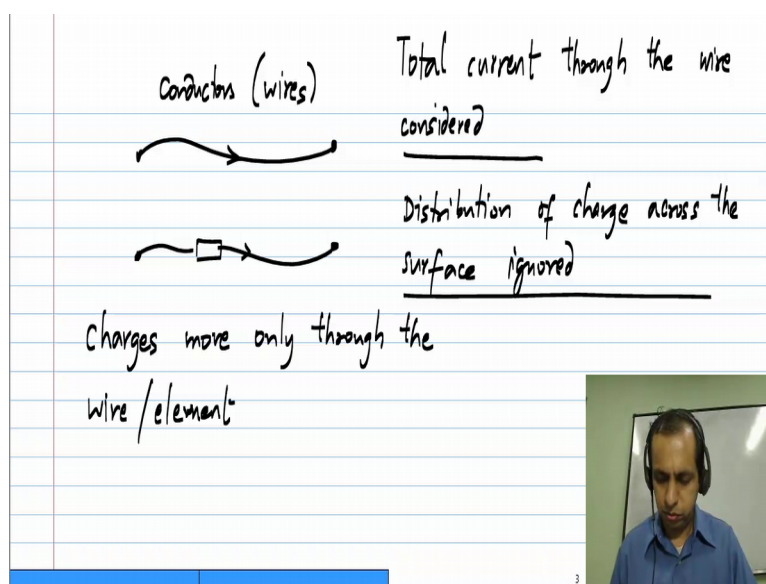 Conductors (wires)
Total current through the wire
considered
Distribution of charge across the
surface ignored
Charges move only through the
wire/element
3